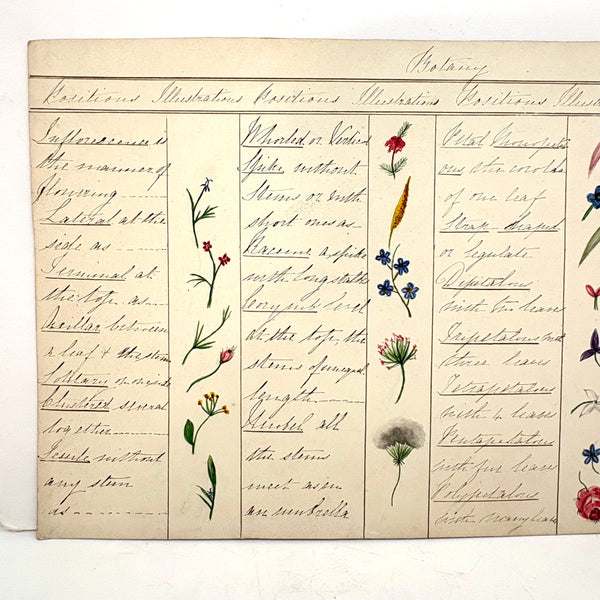 Botany
Positions Illustrations Positions Illustrations Positions Illust
Inflorescence is
the manner of
flowering
Lateral at the
side as
Terminal at
the top as
Axillar between
a leaf & the stem
Solitary or one
Clustered several
together
Sessile without
any stem
as
Whorled or Verticil
Spike without
Stems or with
short ones as
Raceme a spike
with long stalks
Corymb level
at the top, the
stems of unequal
length
Umbel all
the stems
meet as in
an umbrella
Petal Monopetal
ous, the corolla
of one leaf
Strap-shaped
or legulate
Dipetalous
with two leaves
Tripetalous with
three leaves
Tetrapetalous
with 4 leaves
Pentapetalous
with five leaves
Polypetalous
with many leaves